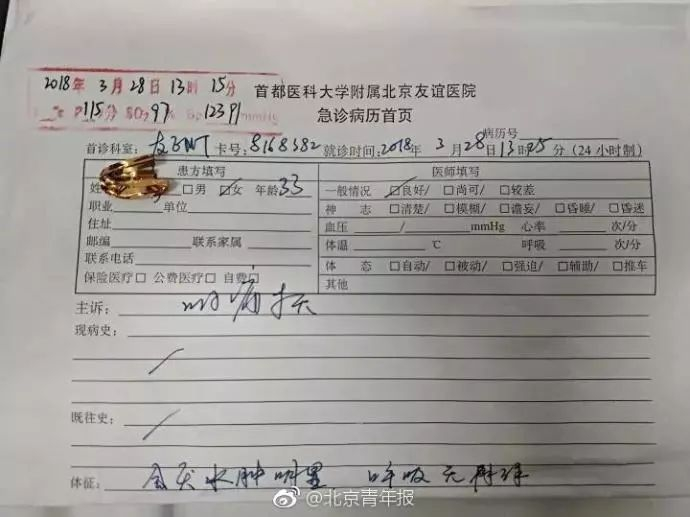 2018年3月28日13时15分
P115分 SO₂97 Bp 123/91 mmHg
首都医科大学附属北京友谊医院
急诊病历首页
病历号
首诊科室： 卡号：8168382 就诊时间：2018年3月28日13时25分（24小时制）
患方填写
姓 □男 ☑女 年龄33
职业 单位
住址
邮编 联系家属
联系电话
保险医疗□ 公费医疗□ 自费□
医师填写
一般情况 ☑良好/ □尚可/ □较差
神 志 □清楚/ □模糊/ □谵妄/ □昏睡/ □昏迷
血压 / mmHg 心率 次/分
体温 ℃ 呼吸 次/分
体 态 □自动/ □被动/ □强迫/ □辅助/ □推车
其他
主诉：
现病史：
既往史：
体征： 会厌水肿明显 呼吸无
@北京青年报